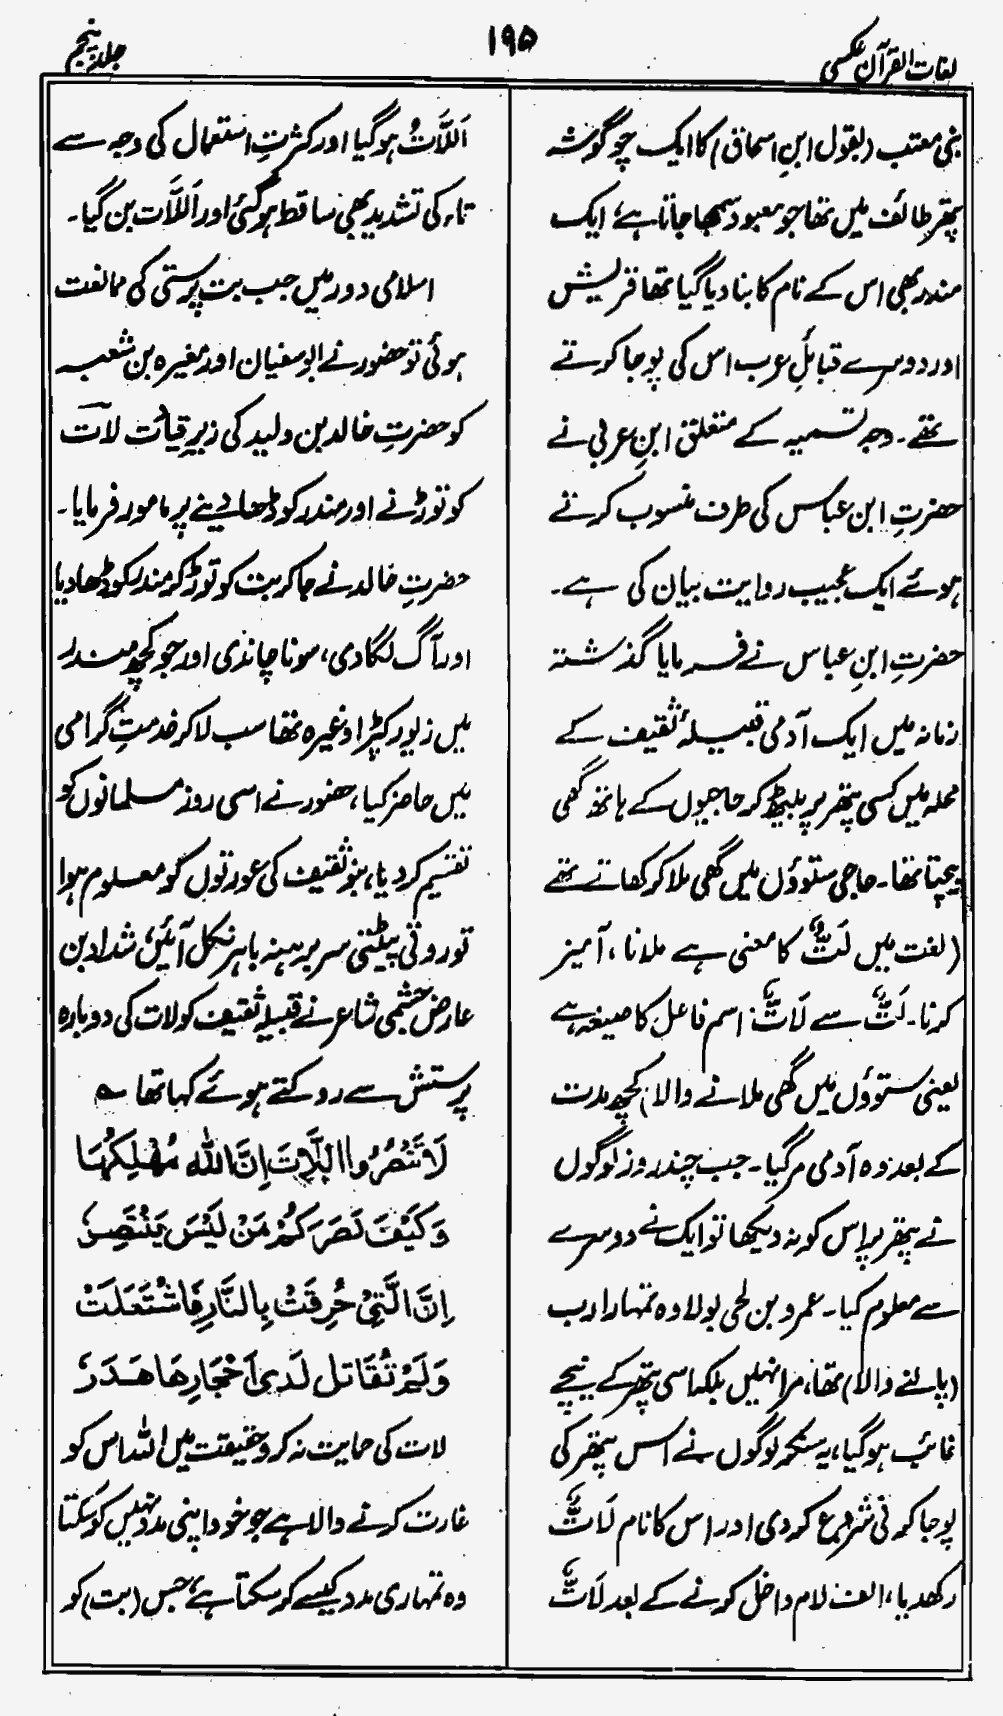 لغات القرآن عکسی
۱۹۵
جلد پنجم
بنی معتب (بقول ابنِ اسحاق) کا ایک چوگوشہ
پتھر طائف میں تھا جو معبود سمجھا جاتا ہے، ایک
مندر بھی اس کے نام کا بنا دیا گیا تھا قریش
اور دوسرے قبائلِ عرب اس کی پوجا کرتے
تھے۔ وجہ تسمیہ کے متعلق ابنِ عربی نے
حضرتِ ابن عباس کی طرف منسوب کرتے
ہوئے ایک عجیب روایت بیان کی ہے۔
حضرتِ ابنِ عباس نے فرمایا گذشتہ
زمانہ میں ایک آدمی قبیلۂ ثقیف کے
محلہ میں کسی پتھر پر بیٹھ کر حاجیوں کے ہاتھ گھی
بیچتا تھا۔ حاجی ستوؤں میں گھی ملا کر کھاتے تھے
(لغت میں لَتٌّ کا معنی ہے ملانا، آمیز
کرنا۔ لَتٌّ سے لَاتٌّ اسم فاعل کا صیغہ ہے
یعنی ستوؤں میں گھی ملانے والا) کچھ مدت
کے بعد وہ آدمی مر گیا۔ جب چند روز لوگوں
نے پتھر پر اس کو نہ دیکھا تو ایک نے دوسرے
سے معلوم کیا۔ عمرو بن لحی بولا وہ تمہارا رب
(پالنے والا) تھا، مرا نہیں بلکہ اسی پتھر کے نیچے
غائب ہو گیا، یہ سنکر لوگوں نے اس پتھر کی
پوجا کرنی شروع کر دی اور اس کا نام لَاتٌّ
رکھدیا، الف لام داخل کرنے کے بعد لَاتٌّ
اَللَّاتُّ ہو گیا اور کثرتِ استعمال کی وجہ سے
تاء کی تشدید بھی ساقط ہو گئی اور اَللَّات بن گیا۔
اسلامی دور میں جب بت پرستی کی ممانعت
ہوئی تو حضور نے ابو سفیان اور مغیرہ بن شعبہ
کو حضرتِ خالد بن ولید کی زیرِ قیادت لات
کو توڑنے اور مندر کو ڈھا دینے پر مامور فرمایا۔
حضرتِ خالد نے جا کر بت کو توڑ کر مندر کو ڈھا دیا
اور آگ لگا دی، سونا چاندی اور جو کچھ مندر
میں زیور کپڑا وغیرہ تھا سب لا کر خدمتِ گرامی
میں حاضر کیا، حضور نے اسی روز مسلمانوں کو
تقسیم کر دیا، بنو ثقیف کی عورتوں کو معلوم ہوا
تو روتی پیٹتی سر برہنہ باہر نکل آئیں، شداد بن
عارض جشمی شاعر نے قبیلہ ثقیف کو لات کی دوبارہ
پرستش سے روکتے ہوئے کہا تھا ؎
لَا تَنْصُرُوا اللَّاتَ اِنَّ اللّٰهَ مُهْلِكُهَا
وَكَيْفَ نَصَرَكُمْ مَنْ لَيْسَ يَنْتَصِرُ
اِنَّ الَّتِيْ حُرِقَتْ بِالنَّارِ فَاشْتَعَلَتْ
وَلَمْ تُقَاتِل لَدى اَحْجَارِهَا هَدَرٌ
لات کی حمایت نہ کرو حقیقت میں اللہ اس کو
غارت کرنے والا ہے جو خود اپنی مدد نہیں کر سکتا
وہ تمہاری مدد کیسے کر سکتا ہے، جس (بت) کو